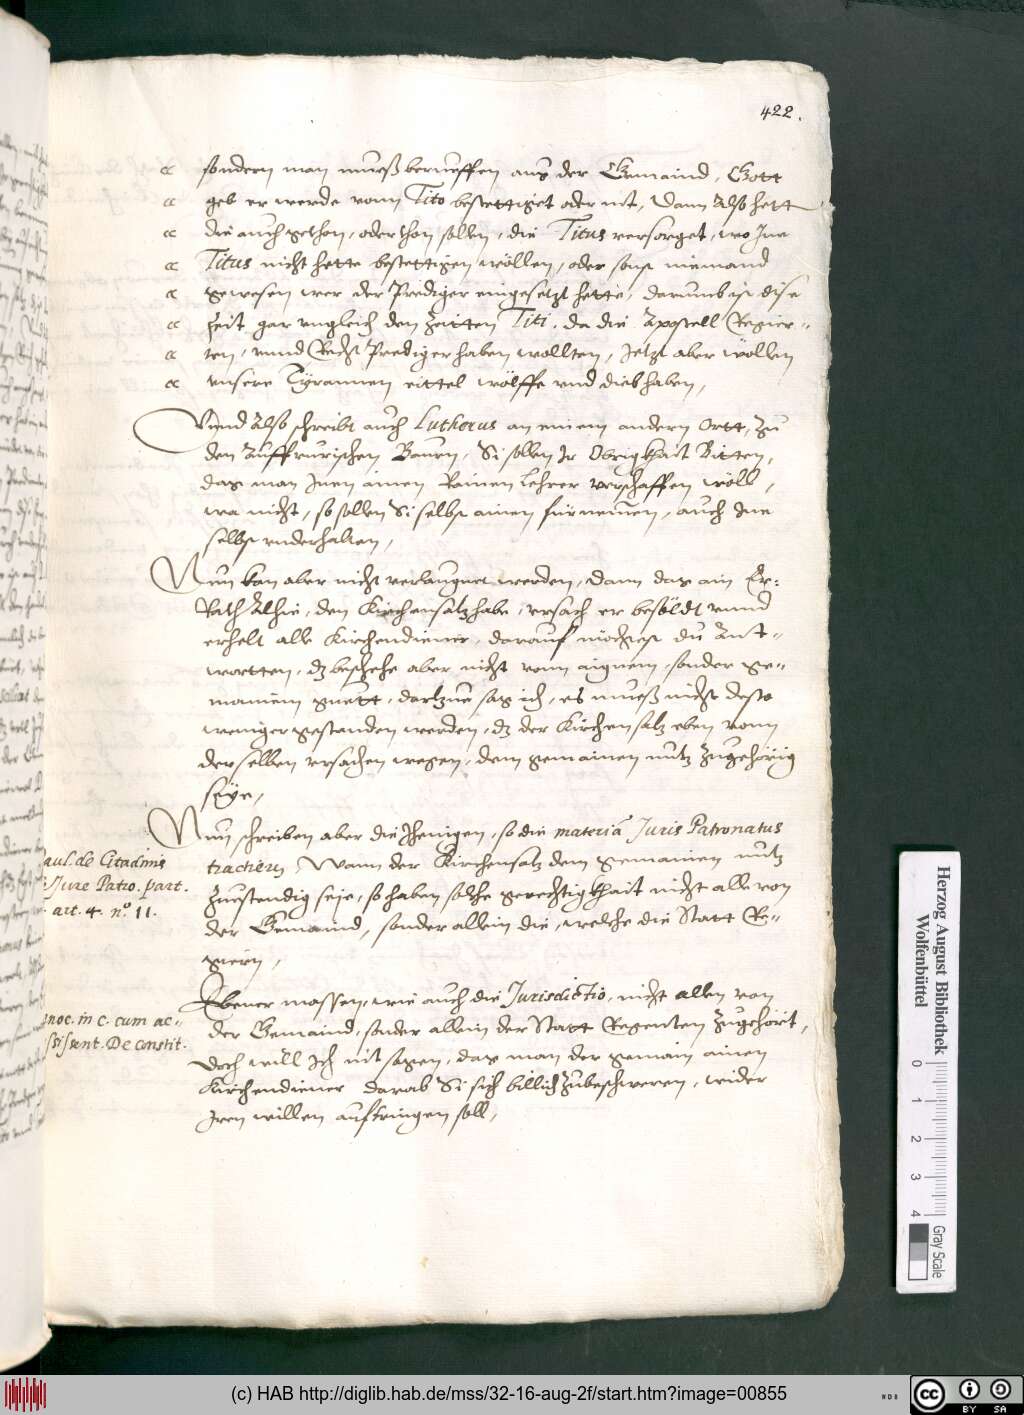 422.
sondern man mueß berueffen auß der Gemaind, Gott
geb er werde vonn Tito bestettiget oder nit, dann also hett
die auch gethon, oder thon sollen, die Titus versorget, wo Inn
Titus nicht hette bestettigen wöllen, oder sonst niemand
gewesen wer der Prediger eingesetzt hette, darumb ist dise
Zeit gar vngleich den Zeitten Titi, da die Apostell Regier-
ten, vnnd Recht Prediger haben wollten, Jetzt aber wöllen
vnsere Tÿrannen eittel wölffe vnd dieb haben,
Vnnd also schreibt auch Lutherus an einem andern Ortt, Zu
den Auffrurischen Bauren, Si sollen Ir Obrigkhait Bitten,
das man Inen ainen Rainen Lehrer verschaffen wöll,
wa nicht, so sollen Si selbs ainen fürnemen, auch Ine
selbs vnderhalten,
Nun kan aber nicht verlaugnet werden, dann das ain Er:
Rath Alhie, den Kirchensatz habe, vrsach er besöldt vnnd
erhelt alle Kirchendiener, darauf möchtest du Ant-
wortten, dz beschehe aber nicht vonn aignem, sonder ge-
mainem guett, dartzue sag ich, es mueß nicht desto
weniger gestanden werden, dz der Kirchensatz eben vonn
derselben vrsachen wegen, dem gemainen nutz Zugehörig
seÿe,
Nun schreiben aber die Jhenigen, so die materiā Juris Patronatus
tractiern, Wann der Kirchensatz dem gemainen nutz
Zuestendig seje, so haben solche gerechtigkhait nicht alle von
der Gemaind, sonder allein die, welche die Statt Re-
giern,
aul. de Citadinis
Jure Patro. part.
art. 4. n.º 11.
Ebner massen, wie auch die Jurisdictio, nicht allen von
der Gemaind, sonder allein der Statt Regenten Zugehört,
Doch will Ich nit sagen, das man der gemain ainen
Kirchendiener darab Si sich billich Zubeschweren, wider
Iren willen auftringen soll,
noc. in c. cum ac-
ssissent. De constit.
Herzog August Bibliothek
Wolfenbüttel
0 1 2 3 4
Gray Scale
(c) HAB http://diglib.hab.de/mss/32-16-aug-2f/start.htm?image=00855
WDB
cc BY SA